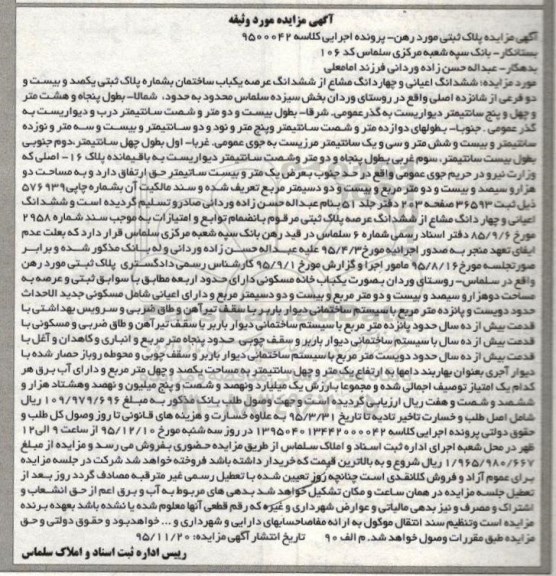 آگهی مزایده مورد وثیقه
آگهی مزایده پلاک ثبتی مورد رهن- پرونده اجرایی کلاسه ۹۵۰۰۰۴۲
بستانکار- بانک سپه شعبه مرکزی سلماس کد ۱۰۶
بدهکار- عبداله حسن زاده وردانی فرزند امامعلی
مورد مزایده: ششدانگ اعیانی و چهاردانگ مشاع از ششدانگ عرصه یکباب ساختمان بشماره پلاک ثبتی یکصد و بیست و
دو فرعی از شانزده اصلی واقع در روستای وردان بخش سیزده سلماس محدود به حدود، شمالا- بطول پنجاه و هشت متر
و چهل و پنج سانتیمتر دیواریست به گذر عمومی. شرقا- بطول بیست و دو متر و شصت سانتیمتر درب و دیواریست به
گذر عمومی. جنوبا- بطولهای دوازده متر و شصت سانتیمتر وپنج متر و نود و دو سانتیمتر و بیست و سه متر و نوزده
سانتیمتر و بیست و شش متر و سی و یک سانتیمتر مرزیست به جوی عمومی. غربا- اول بطول چهل سانتیمتر دوم جنوبی
بطول بیست سانتیمتر، سوم غربی بطول پنجاه و دو متر وشصت سانتیمتر دیواریست به باقیمانده پلاک ۱۶- اصلی که
وزارت نیرو در حریم جوی عمومی واقع در حد جنوب بعرض یک متر و بیست سانتیمتر حق ارتفاق دارد و به مساحت دو
هزارو سیصد و بیست و دو متر مربع و بیست و دو دسیمتر مربع تعریف شده و سند مالکیت آن بشماره چاپی ۵۷۶۹۳۹
ذیل ثبت ۳۶۵۹۳ صفحه ۲۰۳ دفتر جلد ۵۱ بنام عبداله حسن زاده وردانی صادرو تسلیم گردیده است و ششدانگ
اعیانی و چهار دانگ مشاع از ششدانگ عرصه پلاک ثبتی مرقوم بانضمام توابع و امتیازات به موجب سند شماره ۲۹۵۸
مورخ ۸۵/۹/۶ دفتر اسناد رسمی شماره ۶ سلماس در قید رهن بانک سپه شعبه مرکزی سلماس قرار دارد که بعلت عدم
ایفای تعهد منجر به صدور اجرائیه مورخ ۹۵/۴/۳ علیه عبداله حسن زاده وردانی و له بانک مذکور شده و برابر
صورتجلسه مورخ ۹۵/۸/۱۶ مامور اجرا و گزارش مورخ ۹۵/۹/۱ کارشناس رسمی دادگستری پلاک ثبتی مورد رهن
واقع در سلماس- روستای وردان بصورت یکباب خانه مسکونی دارای حدود اربعه مطابق با سوابق ثبتی و عرصه به
مساحت دوهزارو سیصد و بیست و دو متر مربع و بیست و دو دسیمتر مربع و دارای اعیانی شامل مسکونی جدید الاحداث
حدود دویست و پانزده متر مربع با سیستم ساختمانی دیوار باربر با سقف تیرآهن و طاق ضربی و سرویس بهداشتی با
قدمت بیش از ده سال حدود پانزده متر مربع با سیستم ساختمانی دیوار باربر با سقف تیرآهن و طاق ضربی و مسکونی با
قدمت بیش از ده سال با سیستم ساختمانی دیوار باربر و سقف چوبی حدود پنجاه متر مربع و انباری و کاهدان و آغل با
قدمت بیش از ده سال حدود دویست متر مربع با سیستم ساختمانی دیوار باربر و سقف چوبی و محوطه روباز حصار شده با
دیوار آجری بعنوان بهاربند دامها به ارتفاع یک متر و چهل سانتیمتر به مساحت یکصد و چهل متر مربع و دارای آب برق هر
کدام یک امتیاز توصیف اجمالی شده و مجموعا بارزش یک میلیارد ونهصد و شصت و پنج میلیون و نهصد وهشتاد هزار و
ششصد و شصت و هفت ریال ارزیابی گردیده است و جهت وصول طلب بانک مذکور به مبلغ ۱۰۹/۹۷۹/۶۹۶ ریال
شامل اصل طلب و خسارت تاخیر تادیه تا تاریخ ۹۵/۳/۳۱ به علاوه خسارت و هزینه های قانونی تا روز وصول کل طلب و
حقوق دولتی پرونده اجرایی کلاسه ۱۳۹۵۰۴۰۱۳۴۴۲۰۰۰۰۴۲ در روز سه شنبه مورخ ۹۵/۱۲/۱۰ از ساعت ۹ الی ۱۲
ظهر در محل شعبه اجرای اداره ثبت اسناد و املاک سلماس از طریق مزایده حضوری بفروش می رسد و مزایده از مبلغ
۱/۹۶۵/۹۸۰/۶۶۷ ریال شروع و به بالاترین قیمت که خریدار داشته باشد فروخته خواهد شد شرکت در جلسه مزایده
برای عموم آزاد و فروش کلا نقدی است چنانچه روز تعیین شده با تعطیل رسمی غیر مترقبه مصادف گردد روز بعد از
تعطیل جلسه مزایده در همان ساعت و مکان تشکیل خواهد شد بدهی های مربوط به آب و برق اعم از حق انشعاب و
اشتراک و مصرف و نیز بدهی مالیاتی و عوارض شهرداری و غیره که رقم قطعی آنها معلوم شده یا نشده باشد بعهده برنده
مزایده است وتنظیم سند انتقال موکول به ارائه مفاصاحسابهای دارایی و شهرداری و ... خواهدبود و حقوق دولتی و حق
مزایده طبق مقررات وصول خواهد شد. م الف ۹۰ تاریخ انتشار آگهی مزایده: ۹۵/۱۱/۲۰
رییس اداره ثبت اسناد و املاک سلماس